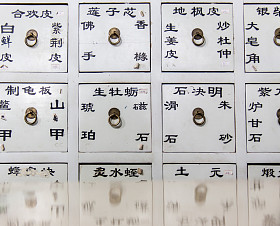 合欢皮
白鲜皮
紫荆皮
莲子芯
佛手
香橼
地枫皮
生姜皮
炒杜仲
银
大皂角
制龟板
鳖甲
山甲
生牡蛎
琥珀
磁石
石决明
滑石
朱砂
紫
炉甘石
水蛭
土元
煅